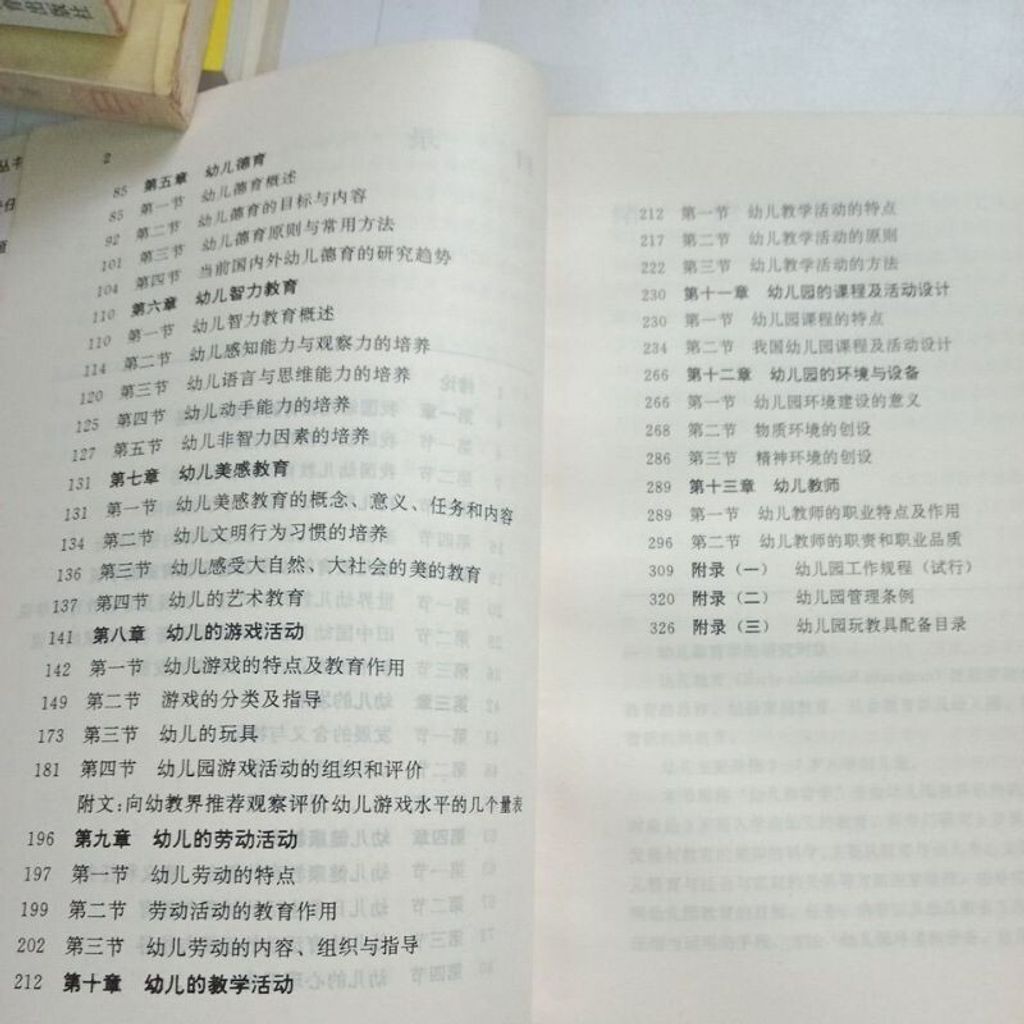 2
85 第五章 幼儿德育
85 第一节 幼儿德育概述
92 第二节 幼儿德育的目标与内容
101 第三节 幼儿德育原则与常用方法
104 第四节 当前国内外幼儿德育的研究趋势
110 第六章 幼儿智力教育
110 第一节 幼儿智力教育概述
114 第二节 幼儿感知能力与观察力的培养
120 第三节 幼儿语言与思维能力的培养
125 第四节 幼儿动手能力的培养
127 第五节 幼儿非智力因素的培养
131 第七章 幼儿美感教育
131 第一节 幼儿美感教育的概念、意义、任务和内容
134 第二节 幼儿文明行为习惯的培养
136 第三节 幼儿感受大自然、大社会的美的教育
137 第四节 幼儿的艺术教育
141 第八章 幼儿的游戏活动
142 第一节 幼儿游戏的特点及教育作用
149 第二节 游戏的分类及指导
173 第三节 幼儿的玩具
181 第四节 幼儿园游戏活动的组织和评价
附文:向幼教界推荐观察评价幼儿游戏水平的几个量表
196 第九章 幼儿的劳动活动
197 第一节 幼儿劳动的特点
199 第二节 劳动活动的教育作用
202 第三节 幼儿劳动的内容、组织与指导
212 第十章 幼儿的教学活动
212 第一节 幼儿教学活动的特点
217 第二节 幼儿教学活动的原则
222 第三节 幼儿教学活动的方法
230 第十一章 幼儿园的课程及活动设计
230 第一节 幼儿园课程的特点
234 第二节 我国幼儿园课程及活动设计
266 第十二章 幼儿园的环境与设备
266 第一节 幼儿园环境建设的意义
268 第二节 物质环境的创设
286 第三节 精神环境的创设
289 第十三章 幼儿教师
289 第一节 幼儿教师的职业特点及作用
296 第二节 幼儿教师的职责和职业品质
309 附录（一） 幼儿园工作规程（试行）
320 附录（二） 幼儿园管理条例
326 附录（三） 幼儿园玩教具配备目录